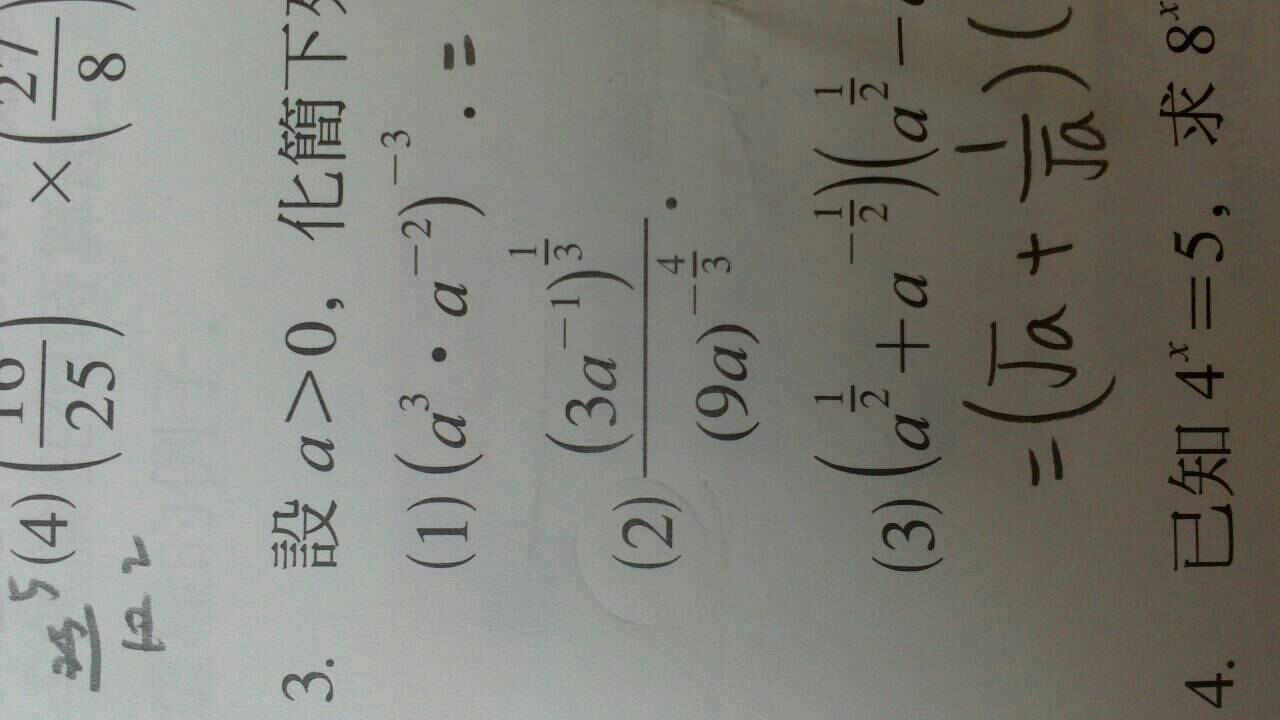 (4) (16/25) × (27/8)
5
12 2
3. 設 a>0, 化簡下列
(1) (a³·a⁻²)⁻³.=
(2) (3a⁻¹)^(1/3) / (9a)^(-4/3).
(3) (a^(1/2)+a^(-1/2))(a^(1/2)-
=(√a + 1/√a)(
4. 已知 4ˣ=5, 求 8ˣ